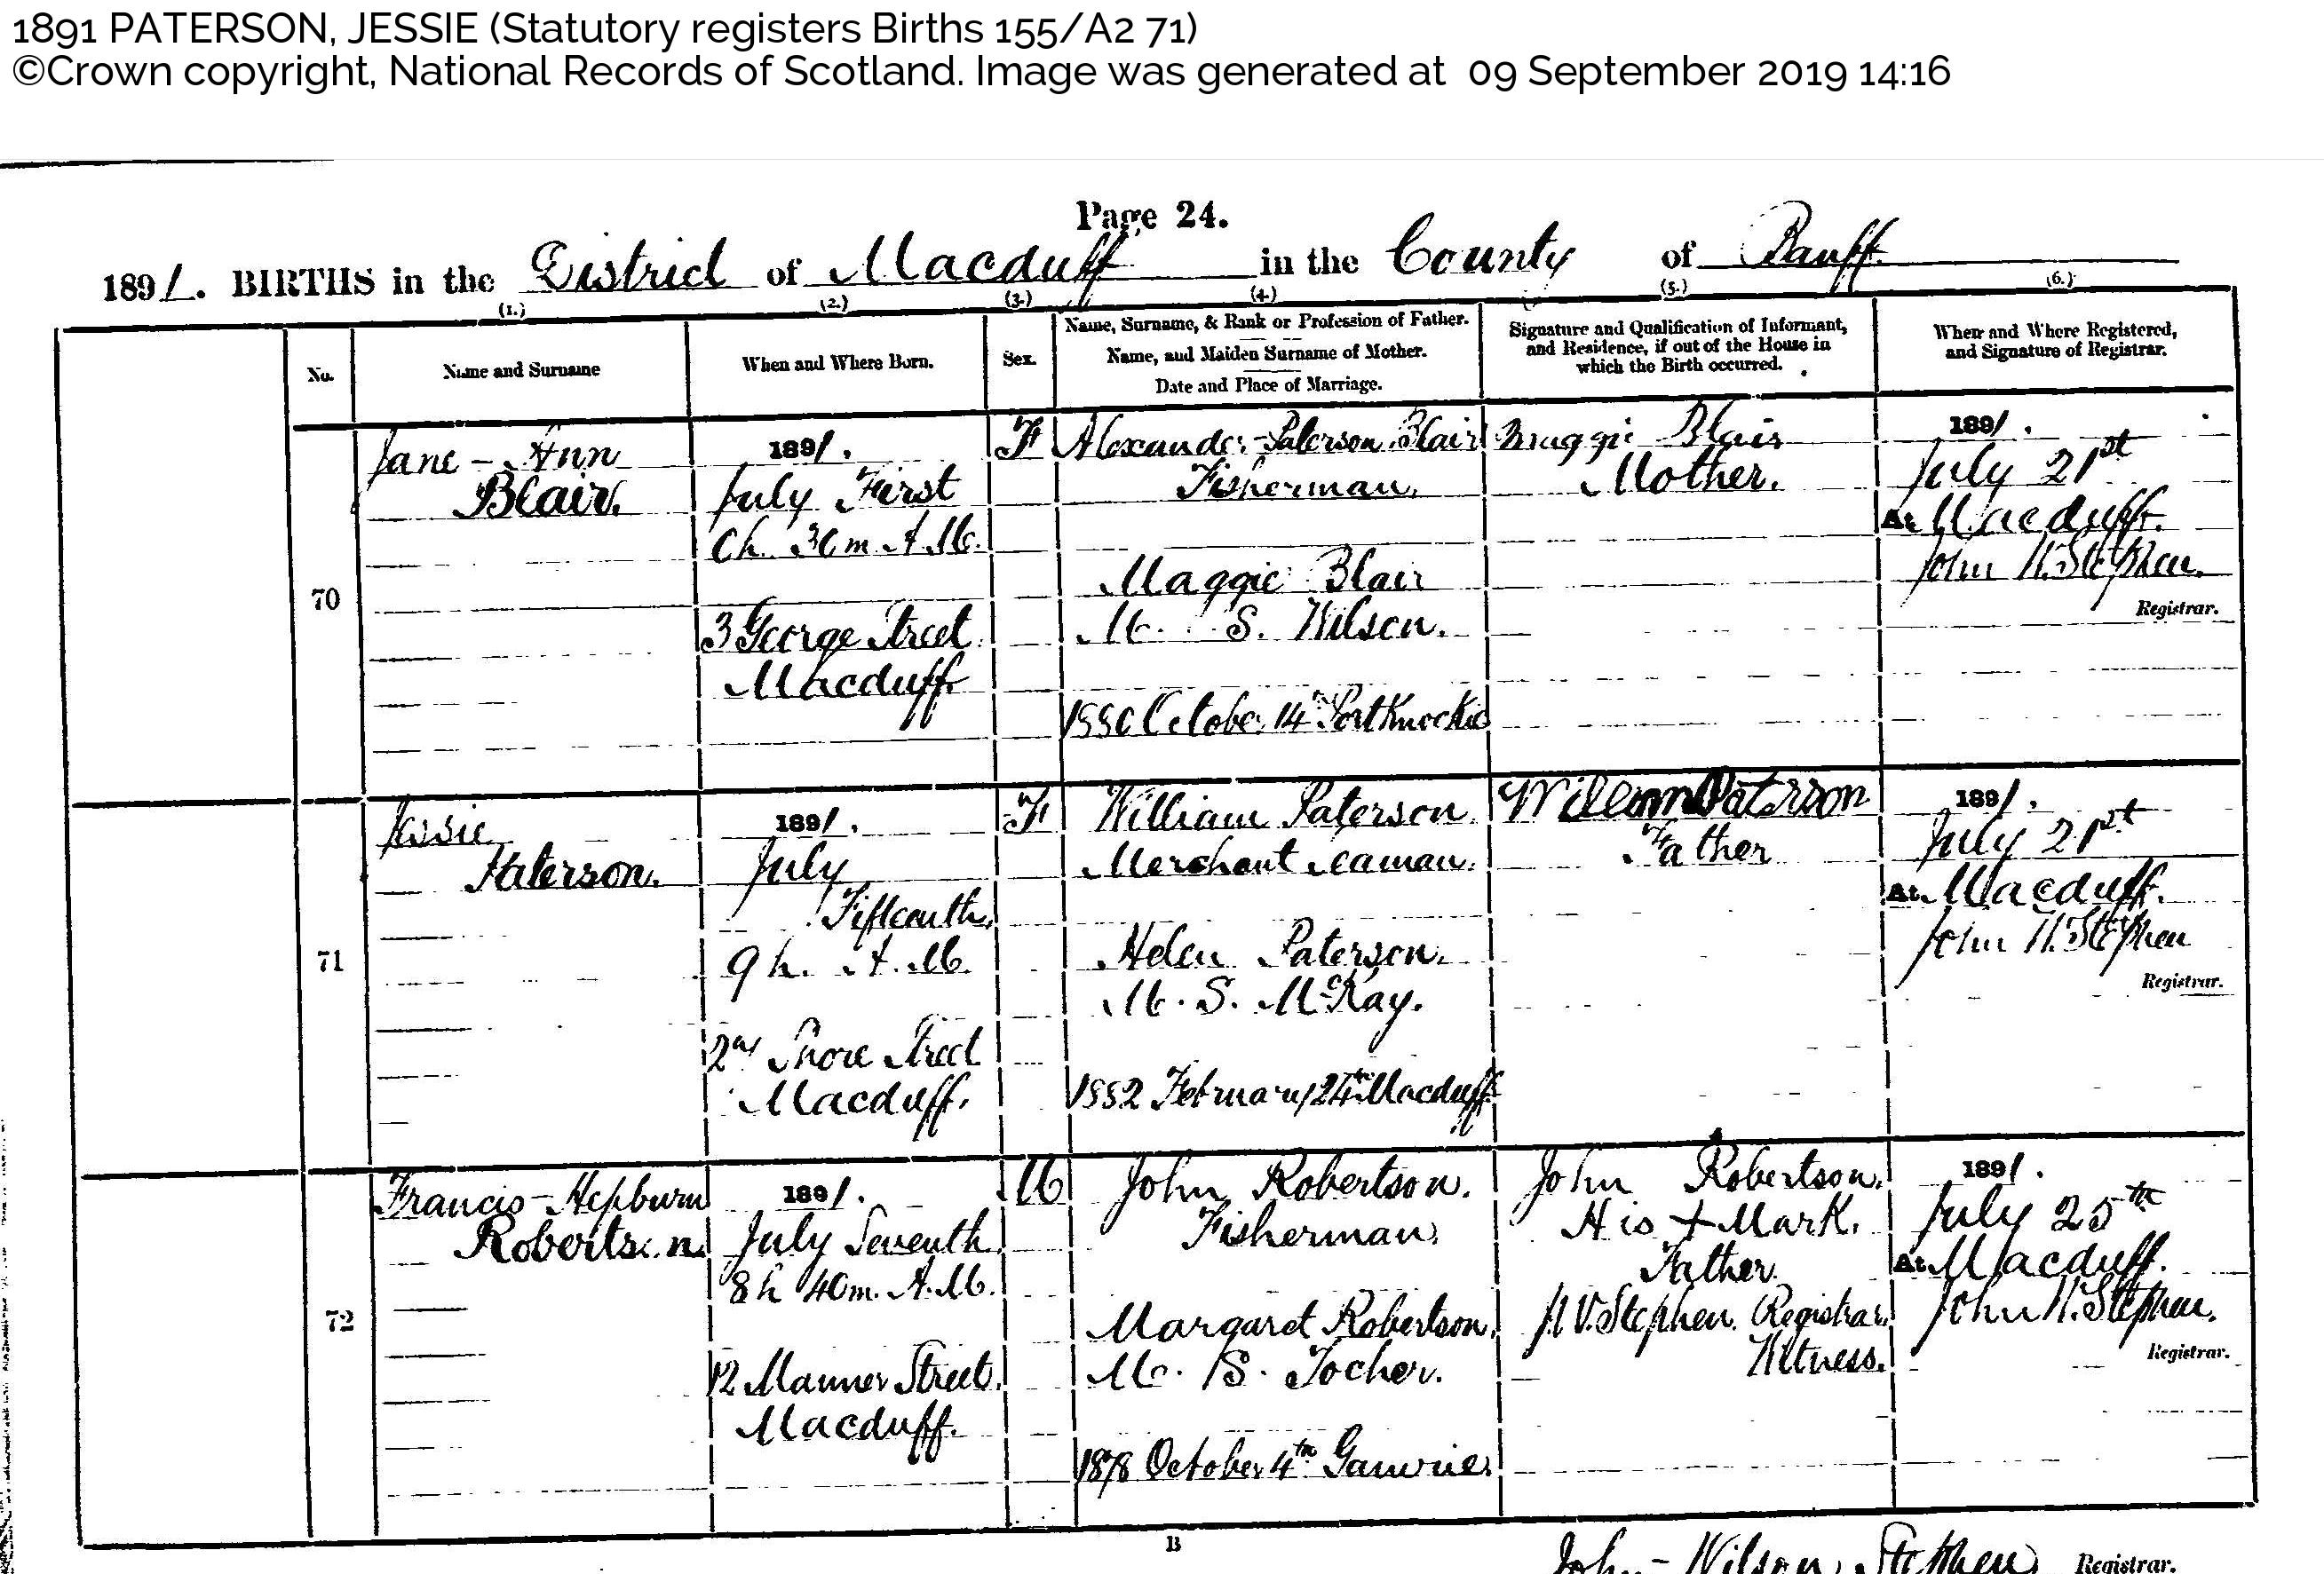 1891 PATERSON, JESSIE (Statutory registers Births 155/A2 71)
©Crown copyright, National Records of Scotland. Image was generated at 09 September 2019 14:16
Page 24.
1891. BIRTHS in the District of Macduff in the County of Banff.
(1.) (2.) (3.) (4.) (5.) (6.)
No.
Name and Surname
When and Where Born.
Sex.
Name, Surname, & Rank or Profession of Father.
Name, and Maiden Surname of Mother.
Date and Place of Marriage.
Signature and Qualification of Informant,
and Residence, if out of the House in
which the Birth occurred.
When and Where Registered,
and Signature of Registrar.
70
Jane-Ann
Blair.
1891.
July First
0h. 30m A.M.
3 George Street
Macduff
F
Alexander Paterson Blair
Fisherman.
Maggie Blair
M. S. Wilson.
October 14th Portknockie
Maggie Blair
Mother.
1891.
July 21st
At Macduff.
John W. Stephen.
Registrar.
71
Jessie
Paterson.
1891.
July
Fifteenth.
9h. A.M.
Shore Street
Macduff.
F
William Paterson.
Merchant Seaman.
Helen Paterson.
M. S. McKay.
1882 February 24th Macduff
William Paterson
Father
1891.
July 21st
At Macduff.
John W. Stephen
Registrar.
72
Francis-Hepburn
Robertson.
1891.
July Seventh
8h 40m. A.M.
12 Manner Street.
Macduff.
M
John Robertson.
Fisherman.
Margaret Robertson.
M. S. Tocher.
1878 October 4th Gamrie.
John Robertson.
His + Mark.
Father.
J. W. Stephen. Registrar.
Witness.
1891.
July 25th
At Macduff.
John W. Stephen.
Registrar.
B
John-Wilson Stephen Registrar.